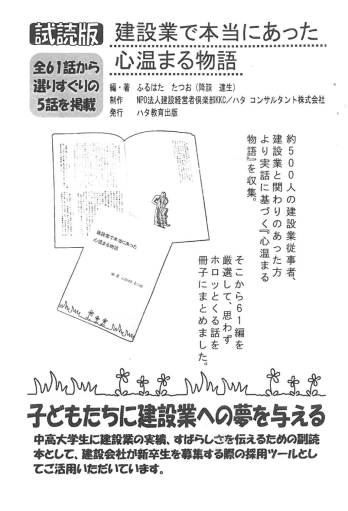 試読版
建設業で本当にあった
心温まる物語
全61話から
選りすぐりの
5話を掲載
編・著 ふるはた たつお(降籏 達生)
制作 NPO法人建設経営者倶楽部KKC/ハタ コンサルタント株式会社
発行 ハタ教育出版
約500人の建設業従事者、
建設業と関わりのあった方
より実話に基づく『心温まる
物語』を収集。
そこから61編を
厳選して、思わず
ホロッとくる話を
冊子にまとめました。
建設業で本当にあった
心温まる物語
子どもたちに建設業への夢を与える
中高大学生に建設業の実績、すばらしさを伝えるための副読
本として、建設会社が新卒生を募集する際の採用ツールとし
てご活用いただいています。